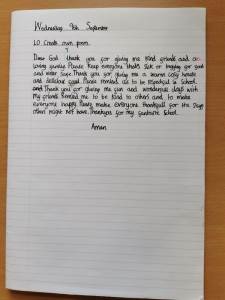 Wednesday 9th September
LO Create own poem.
Dear God thank you for giving me kind friends and a
loving family. Please keep everyone that's sick or begging for food
and water safe. Thank you for giving me a warm cosy house
and delicious food. Please remind us to be respectful in School
and Thank you for giving me fun and wonderful days with
My friends. Remind me to be kind to others and to make
everyone happy. Please make everyone thankful for the Days
others might not have. Thankyou for my fantastic School.
Aman